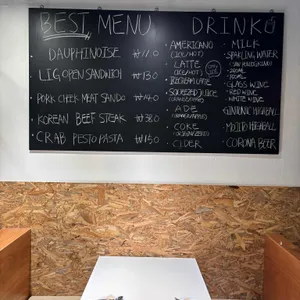 BEST MENU
DAUPHINOISE ₩11.0
OPEN SANDWICH ₩13.0
PORK CHEEK MEAT SANDO ₩14.0
KOREAN BEEF STEAK ₩38.0
CRAB PESTO PASTA ₩15.0
DRINK
· AMERICANO
(ICE/HOT)
· LATTE
(ICE/HOT)
· SQUEEZED JUICE
· ADE
· COKE
· CIDER
· MILK
· SPARKLING WATER
· GLASS WINE
· RED WINE
· WHITE WINE
· MOJITO HIGHBALL
· CORONA BEER